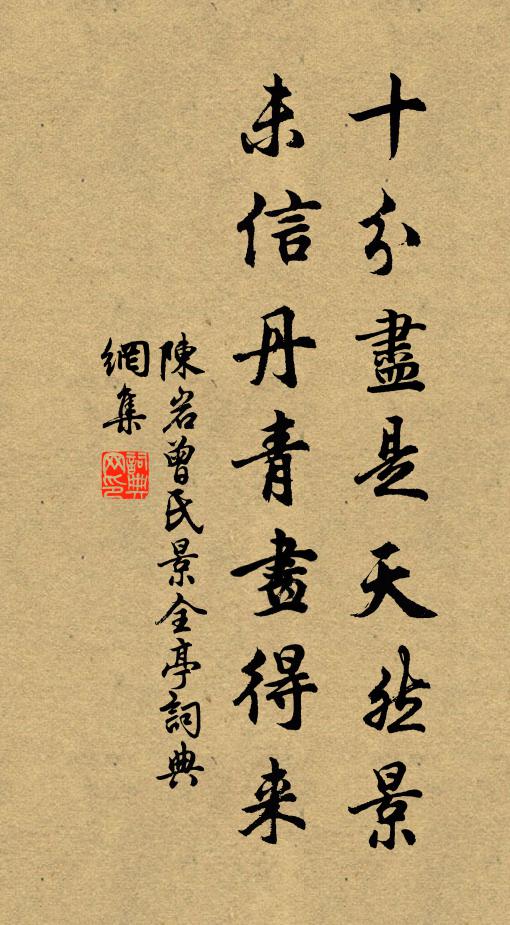 十分盡是天然景
未信丹青畫得来
陳岩曾氏景全亭詞典
網集
詞典
网印